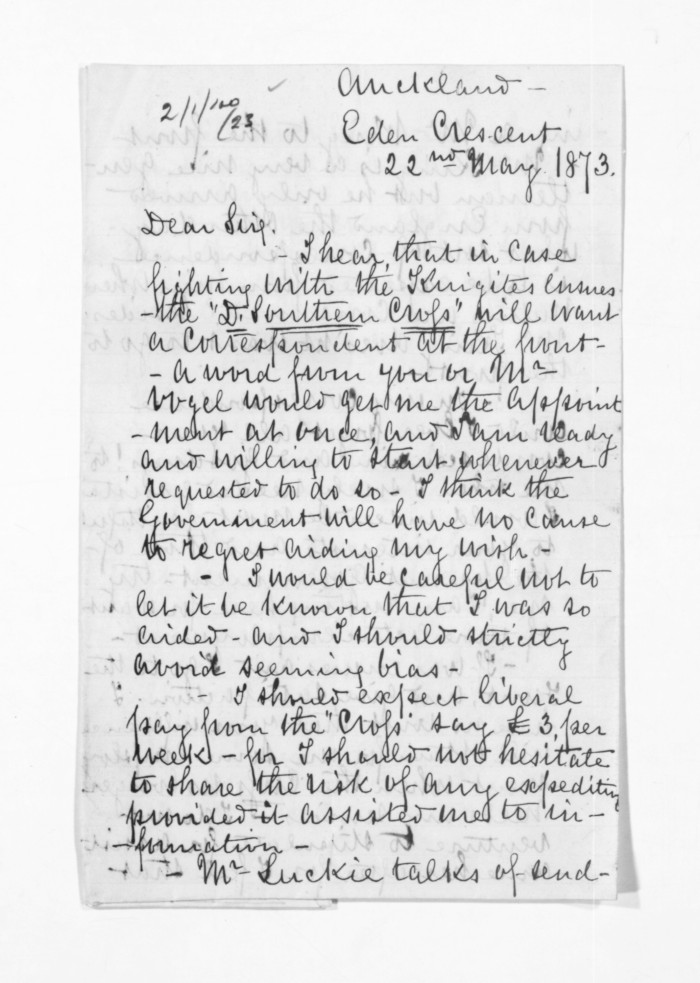 Auckland -
Eden Crescent
22nd May 1873.
Dear Sir,
- I hear, that in case
fighting with the Kingites ensues
- the "D. Southern Cross" will want
a Correspondent at the front -
- a word from you or Mr -
Vogel would get me the appoint
- ment at once, and I am ready
and willing to start whenever
requested to do so - I think the
Government will have no cause
to regret aiding my wish. -
- I would be careful not to
let it be known that I was so
aided - and I should strictly
avoid seeming bias -
- I should expect liberal
pay from the "Cross" say £3, per
week - for I should not hesitate
to share the risk of any expedition
provided it assisted me to in-
- formation -
- Mr Luckie talks of send-